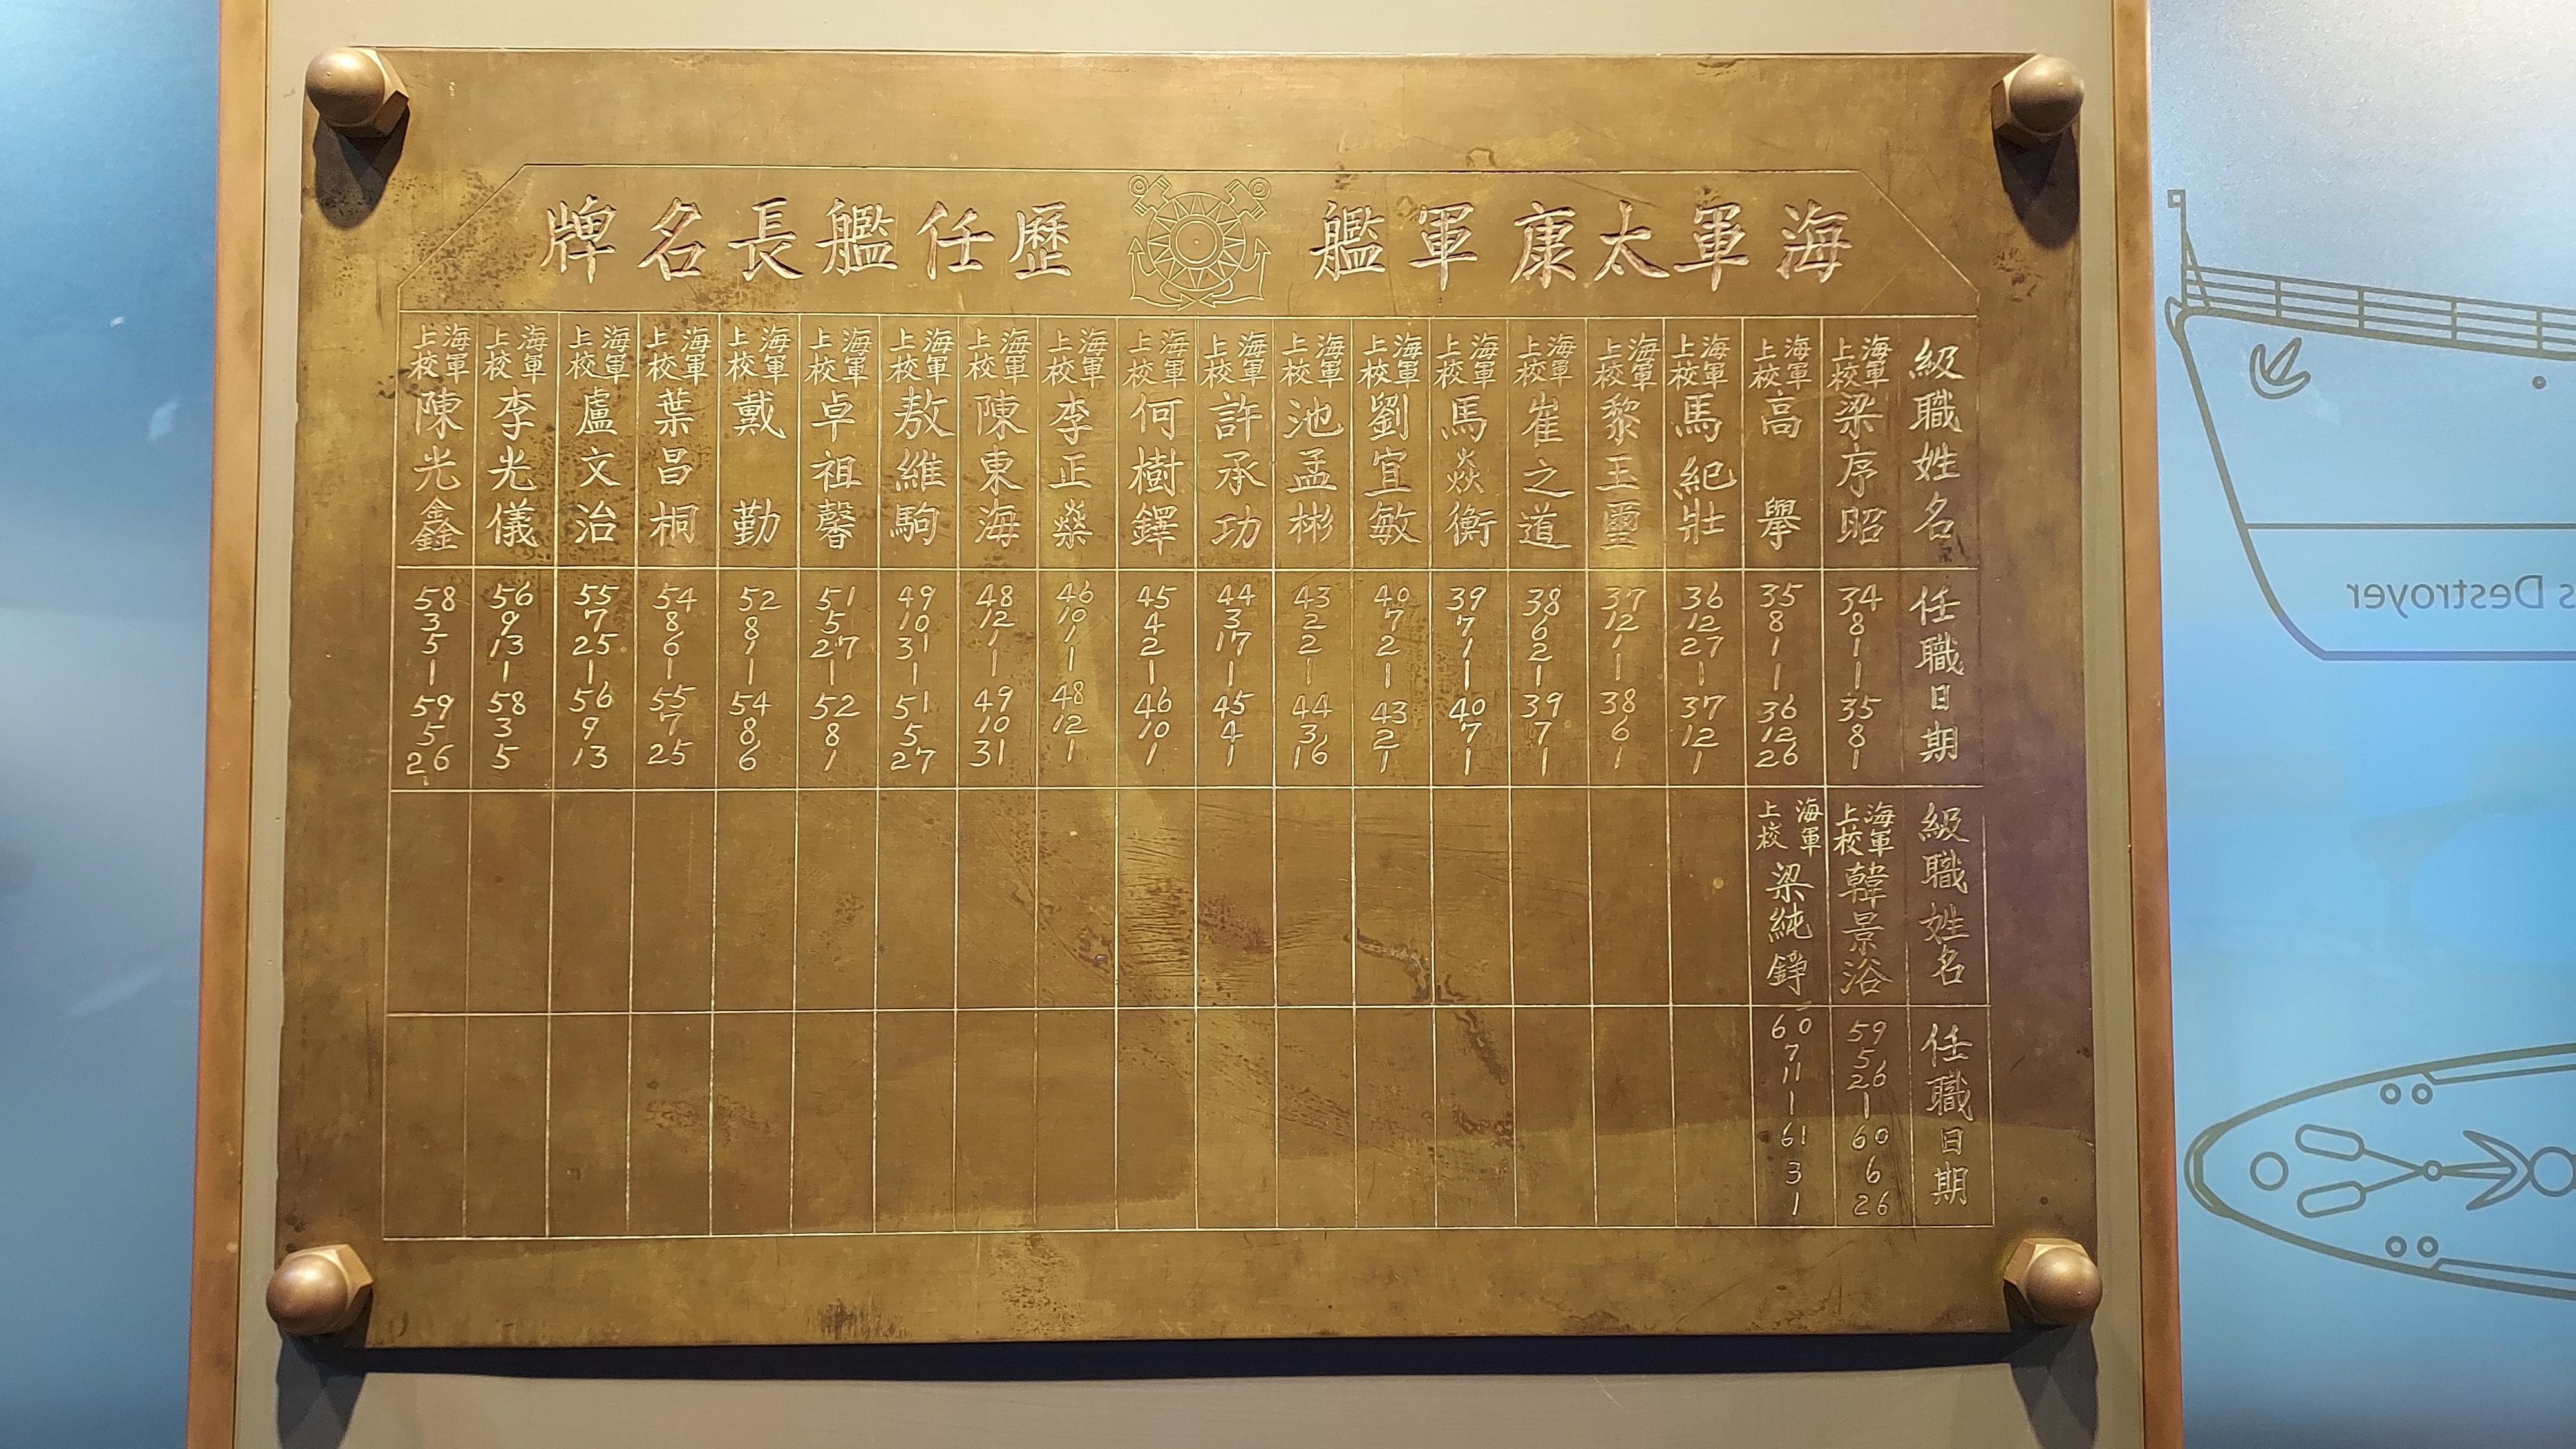 海軍太康軍艦 歷任艦長名牌
級職姓名 任職日期
海軍上校 梁序昭 34 8 1 | 35 8 1
海軍上校 高舉 35 8 1 | 36 12 26
海軍上校 馬紀壯 36 12 27 | 37 12 1
海軍上校 黎玉璽 37 12 1 | 38 6 1
海軍上校 崔之道 38 6 2 | 39 7 1
海軍上校 馬焱衡 39 7 1 | 40 7 1
海軍上校 劉宜敏 40 7 2 | 43 2 1
海軍上校 池孟彬 43 2 2 | 44 3 16
海軍上校 許承功 44 3 17 | 45 4 1
海軍上校 何樹鐸 45 4 2 | 46 10 1
海軍上校 李正燊 46 10 1 | 48 12 1
海軍上校 陳東海 48 12 1 | 49 10 31
海軍上校 敖維駒 49 10 31 | 51 5 27
海軍上校 卓祖馨 51 5 27 | 52 8 1
海軍上校 戴勤 52 8 1 | 54 8 6
海軍上校 葉昌桐 54 8 6 | 55 7 25
海軍上校 盧文治 55 7 25 | 56 9 13
海軍上校 李光儀 56 9 13 | 58 3 5
海軍上校 陳光鑫 58 3 5 | 59 5 26
級職姓名 任職日期
海軍上校 韓景浴 59 5 26 | 60 6 26
海軍上校 梁純錚 60 7 11 | 61 3 1
s Destroyer